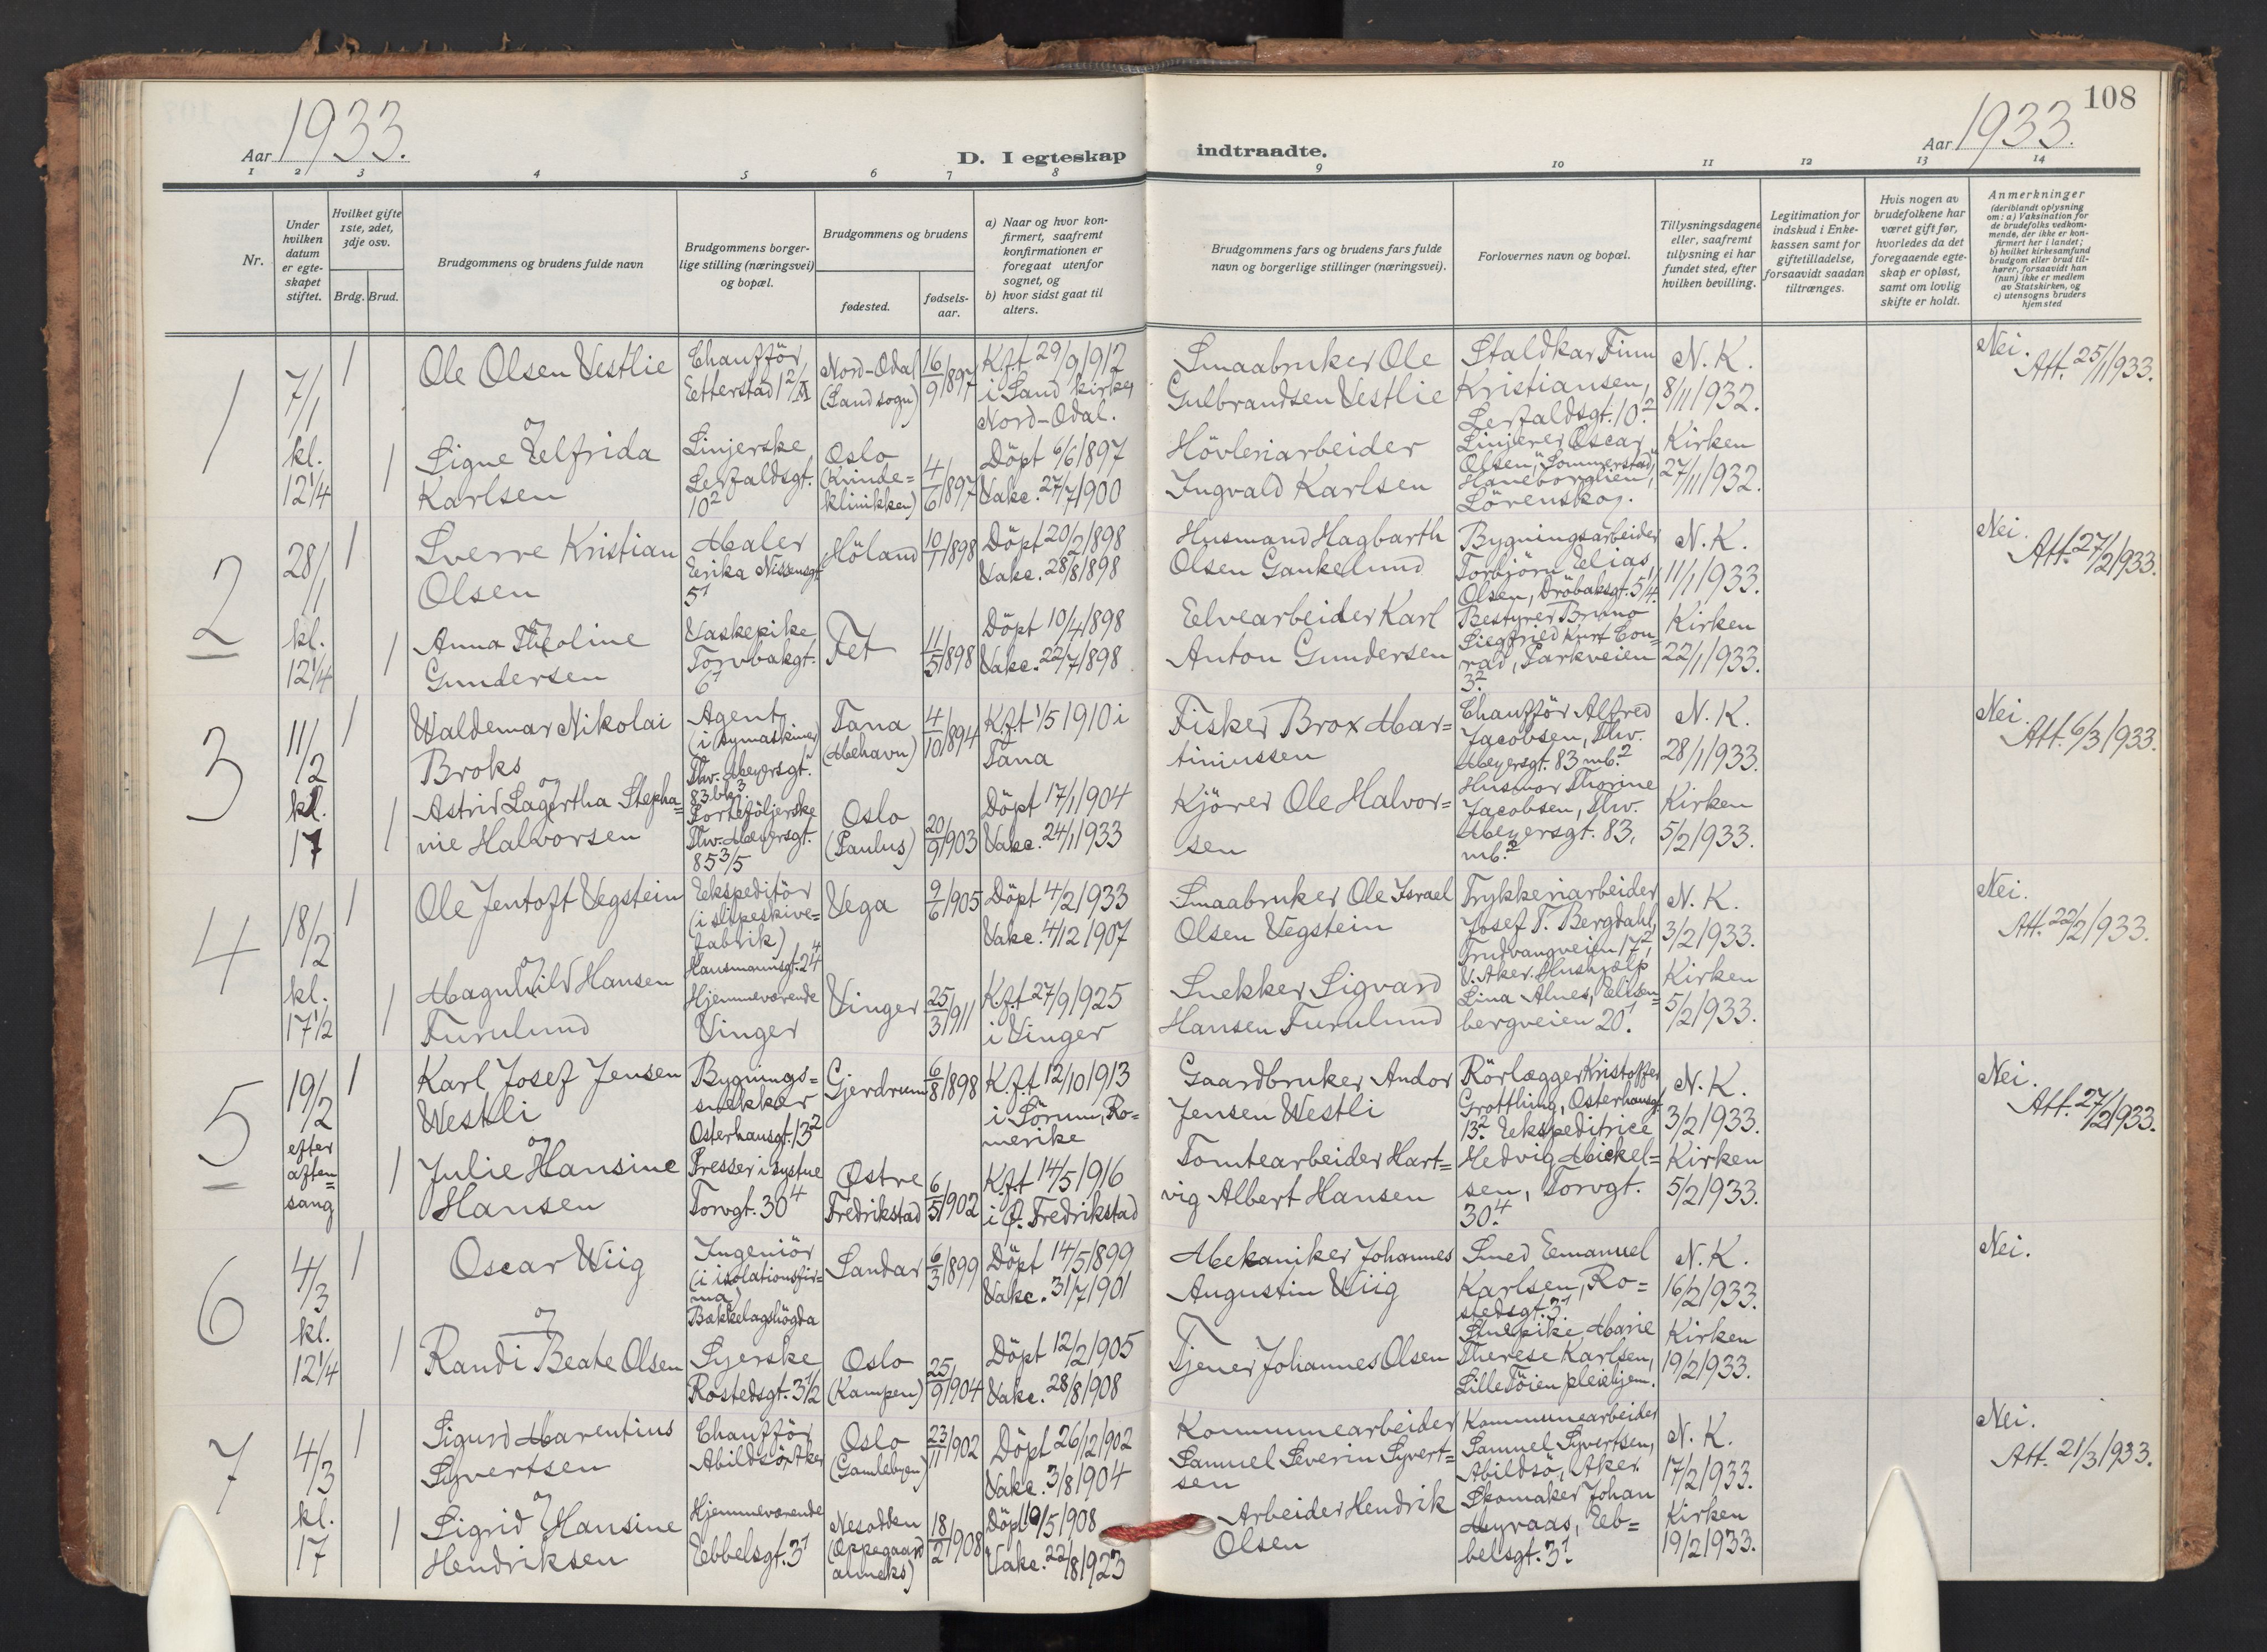 108
Aar 1933.
D. I egteskap
indtraadte.
Aar 1933.
1 2 3 4 5 6 7 8 9 10 11 12 13 14
Nr.
Under hvilken datum er egte-skapet stiftet.
Hvilket gifte 1ste, 2det, 3dje osv.
Brdg. Brud.
Brudgommens og brudens fulde navn
Brudgommens borger-lige stilling (næringsvei) og bopæl.
Brudgommens og brudens
fødested.
fødsels-aar.
a) Naar og hvor kon-firmert, saafremt konfirmationen er foregaat utenfor sognet, og
b) hvor sidst gaat til alters.
Brudgommens fars og brudens fars fulde navn og borgerlige stillinger (næringsvei).
Forlovernes navn og bopæl.
Tillysningsdagene eller, saafremt tillysning ei har fundet sted, efter hvilken bevilling.
Legitimation for indskud i Enke-kassen samt for giftetilladelse, forsaavidt saadan tiltrænges.
Hvis nogen av brudefolkene har været gift før, hvorledes da det foregaaende egte-skap er opløst, samt om lovlig skifte er holdt.
Anmerkninger (deriblandt oplysning om: a) Vaksination for de brudefolks vedkom-mende, der ikke er kon-firmert her i landet; b) hvilket kirkesamfund brudgom eller brud til-hører, forsaavidt han (hun) ikke er medlem av Statskirken, og c) utensogns bruders hjemsted
1
7/1
kl.
12 1/4
1
Ole Olsen Vestlie
Chaufför
Etterstad 1 2/XI
Nord-Odal
(Sand sogn)
16/9 1897
K.f.t 29/9 1912
i Sand kirke,
Nord-Odal.
Smaabruker Ole
Gulbrandsen Vestlie
Staldkar Finn
Kristiansen,
Lerfaldsgt. 10 2.
N. K.
8/11 1932.
Nei.
Att. 25/1 1933.
og
1
Signe Elfrida
Karlsen
Linjerske
Lerfaldsgt.
10 2
Oslo
(Kvinde=
klinikken)
4/6 1897
Döpt 6/6 1897
Vakc. 27/7 1900
Hövleriarbeider
Ingvald Karlsen
Linjerer Oscar
Olsen, "Sommerstad",
Haneborglien,
Lörenskog.
Kirken
27/11 1932.
2
28/1
kl.
12 1/4
1
Sverre Kristian
Olsen
Maler
Erika Nissensgt
5 1
Höland
10/1 1898
Döpt 20/2 1898
Vakc. 28/8 1898
Husmand Hagbarth
Olsen Gankelund
Bygningsarbeider
Torbjörn Elias
Olsen, Dröbaksgt. 5 1/4.
N. K.
11/1 1933.
Nei.
Att. 27/2 1933.
og
1
Anna Theoline
Gundersen
Vaskepike
Torvbakgt.
6 1
Fet
11/5 1898
Döpt 10/4 1898
Vakc. 22/7 1898
Elvearbeider Karl
Anton Gundersen
Bestyrer Bruno
Siegfried Kurt Con=
rad, Parkveien
3 2.
Kirken
22/1 1933.
3
11/2
kl.
17
1
Waldemar Nikolai
Broks
Agent
(i symaskiner)
Thv. Meyersgt.
83 bkg 3.
Tana
(Mehavn)
4/10 1894
K.f.t 1/5 1910 i
Tana
Fisker Brox Mar=
tiniussen
Chaufför Alfred
Jacobsen, Thv.
Meyersgt. 83 mb. 2
N. K.
28/1 1933.
Nei.
Att. 6/3 1933.
og
1
Astrid Lagertha Stepha=
nie Halvorsen
Porteföljerske
Thv. Meyersgt.
85 3/5
Oslo
(Paulus)
20/9 1903
Döpt 17/1 1904
Vakc. 24/1 1933
Kjörer Ole Halvor=
sen
Husmor Thorine
Jacobsen, Thv.
Meyersgt. 83,
mb. 2
Kirken
5/2 1933.
4
18/2
kl.
17 1/2
1
Ole Jentoft Vegstein
Ekspeditör
(i slipeskive=
fabrik)
Hausmannsgt. 24 4
Vega
9/6 1905
Döpt 4/2 1933
Vakc. 4/12 1907
Smaabruker Ole Israel
Olsen Vegstein
Trykkeriarbeider
Josef T. Bergdahl,
Trudvangveien 17 2,
V. Aker. Hushjælp
N. K.
3/2 1933.
Nei.
Att. 22/2 1933.
og
1
Magnhild Hansen
Furulund
Hjemmeværende
Vinger
Vinger
25/3 1911
K.f.t 27/9 1925
i Vinger
Snekker Sigvard
Hansen Furulund
Lina Alnes, Eilsen=
bergveien 20 1.
Kirken
5/2 1933.
5
19/2
efter
aften=
sang
1
Karl Josef Jensen
Westli
Bygnings=
snekker
Osterhausgt. 13 2
Gjerdrum
6/8 1898
K.f.t 12/10 1913
i Sörum, Ro=
merike
Gaardbruker Andor
Jensen Westli
Rörlægger Kristoffer
Grottling, Osterhausgt
13 2. Ekspeditrice
N. K.
3/2 1933.
Nei.
Att. 27/2 1933.
og
1
Julie Hansine
Hansen
Presser i systue
Torvgt. 30 4
Østre
Fredrikstad
6/5 1902
K.f.t 14/5 1916
i Ø. Fredrikstad
Tomtearbeider Hart=
vig Albert Hansen
Hedvig Mickel=
sen, Torvgt.
30 4.
Kirken
5/2 1933.
6
4/3
kl.
12 1/4
1
Oscar Wiig
Ingeniör
(i isolationsfir=
ma)
Bækkelagshögda
Sandar
6/3 1899
Döpt 14/5 1899
Vakc. 31/7 1901
Mekaniker Johannes
Augustin Wiig
Smed Emanuel
Karlsen, Ro=
stedsgt. 3 1
N. K.
16/2 1933.
Nei.
og
1
Randi Beate Olsen
Syerske
Rostedsgt. 3 1/2
Oslo
(Kampen)
25/9 1904
Döpt 12/2 1905
Vakc. 28/8 1908
Tjener Johannes Olsen
Stuepike Marie
Therese Karlsen,
Lille Töien pleiehjem.
Kirken
19/2 1933.
7
4/3
kl.
17
1
Sigurd Marentius
Syvertsen
Chaufför
Abildsö, Aker
Oslo
(Gamlebyen)
23/11 1902
Döpt 26/12 1902
Vakc. 3/8 1904
Kommunearbeider
Samuel Severin Syvert=
sen
Kommunearbeider
Samuel Syvertsen,
Abildsö, Aker.
N. K.
17/2 1933.
Nei.
Att. 21/3 1933.
og
1
Sigrid Hansine
Hendriksen
Hjemmeværende
Ebbelsgt. 3 1
Nesodden
(Oppegaard
anneks)
18/2 1908
Döpt 10/5 1908
Vakc. 22/8 1923
Arbeider Hendrik
Olsen
Skomaker Johan
Myraas, Eb=
belsgt. 3 1.
Kirken
19/2 1933.